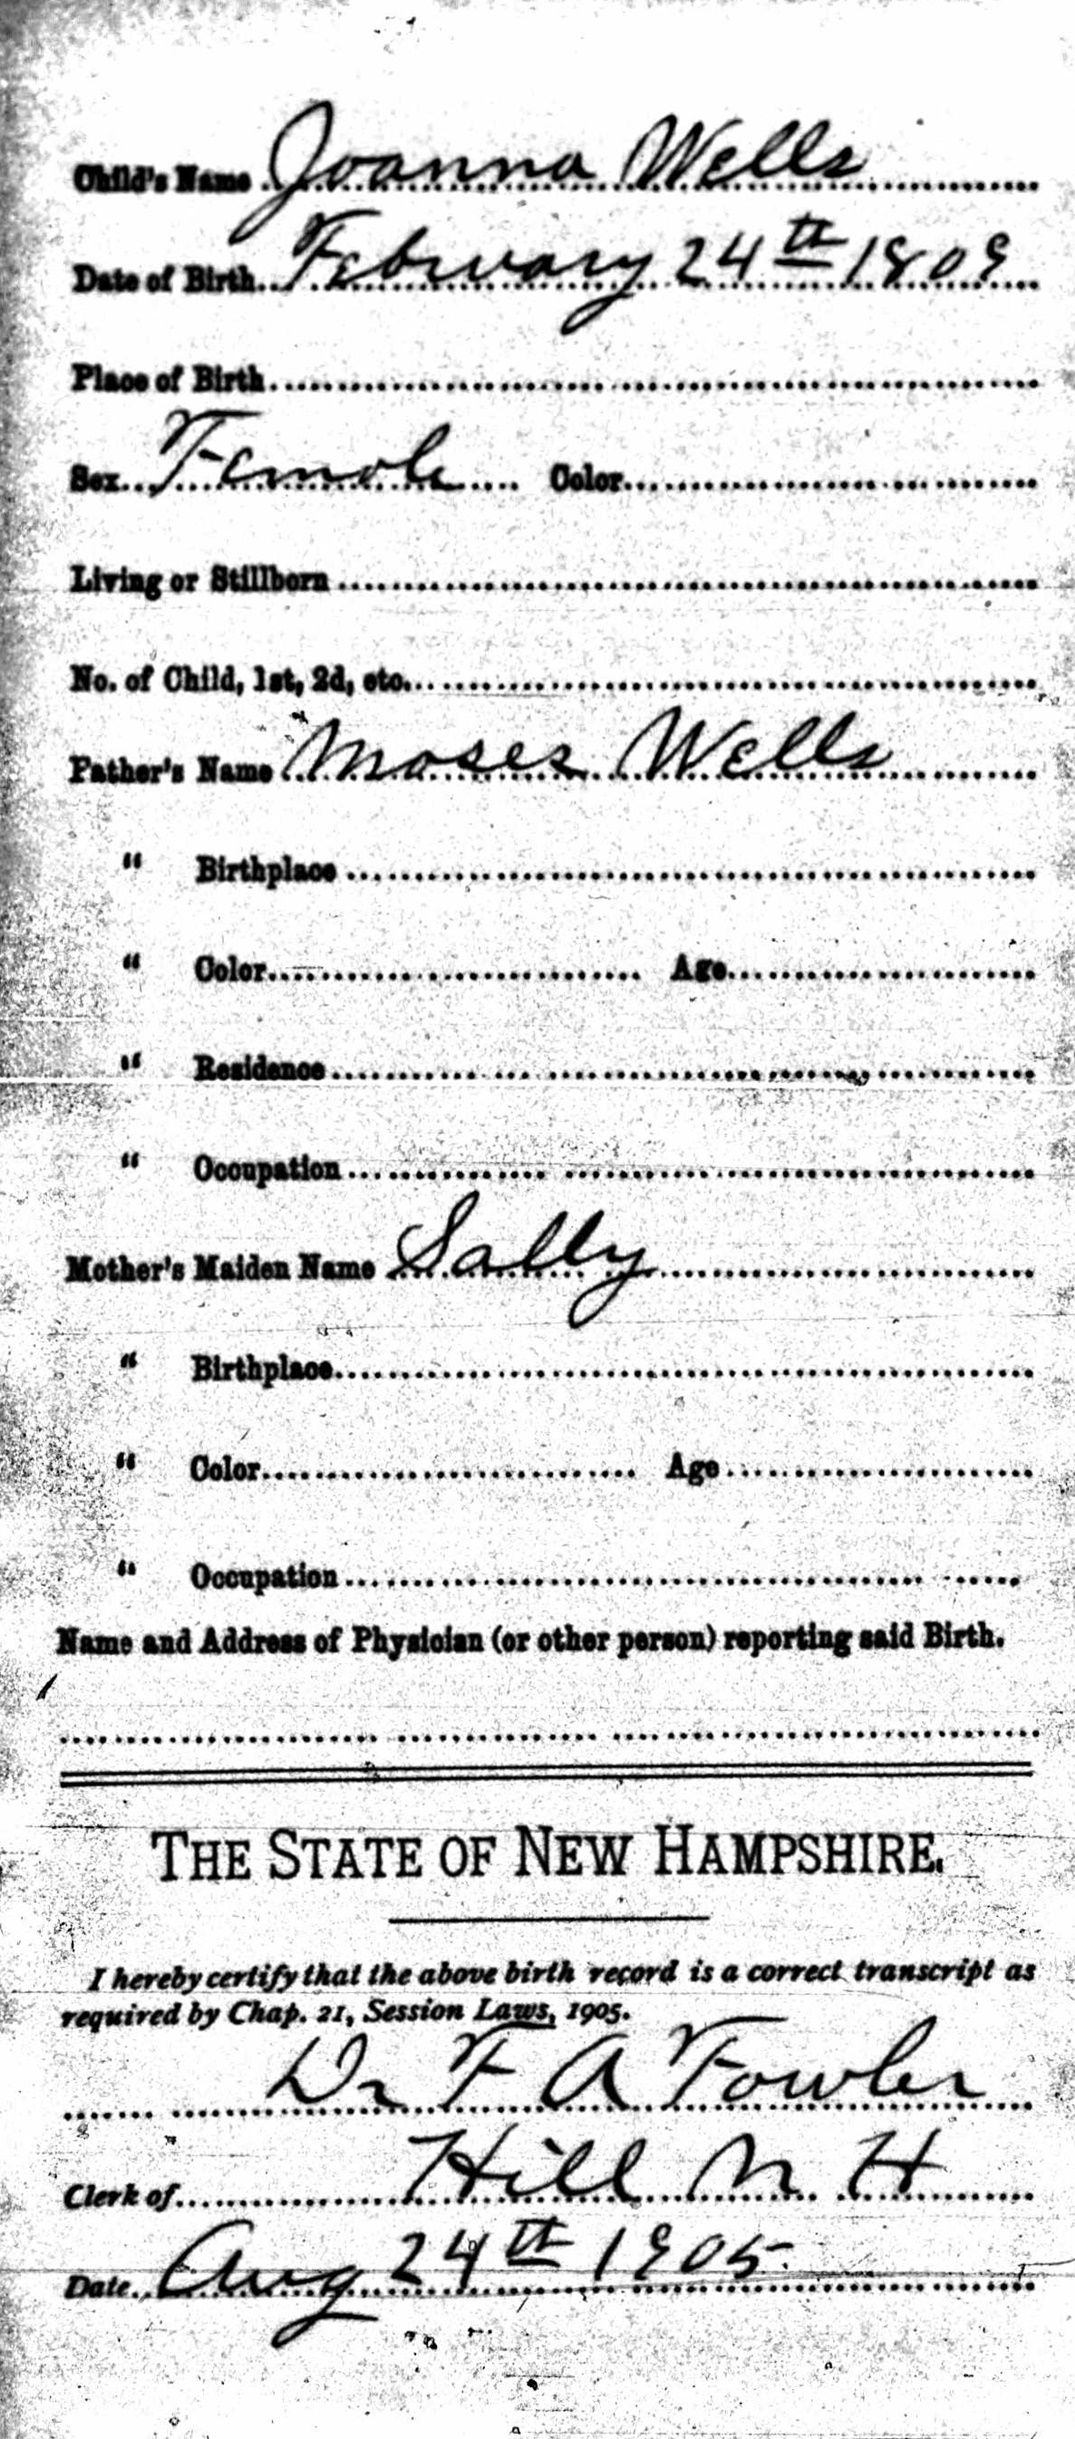 Child's Name Joanna Wells
Date of Birth February 24th 1809
Place of Birth
Sex Female Color
Living or Stillborn
No. of Child, 1st, 2d, etc.
Father's Name Moses Wells
" Birthplace
" Color Age
" Residence
" Occupation
Mother's Maiden Name Sally
" Birthplace
" Color Age
" Occupation
Name and Address of Physician (or other person) reporting said Birth.
THE STATE OF NEW HAMPSHIRE.
I hereby certify that the above birth record is a correct transcript as
required by Chap. 21, Session Laws, 1905.
Dr F A Fowler
Clerk of Hill N H
Date Aug 24th 1905.